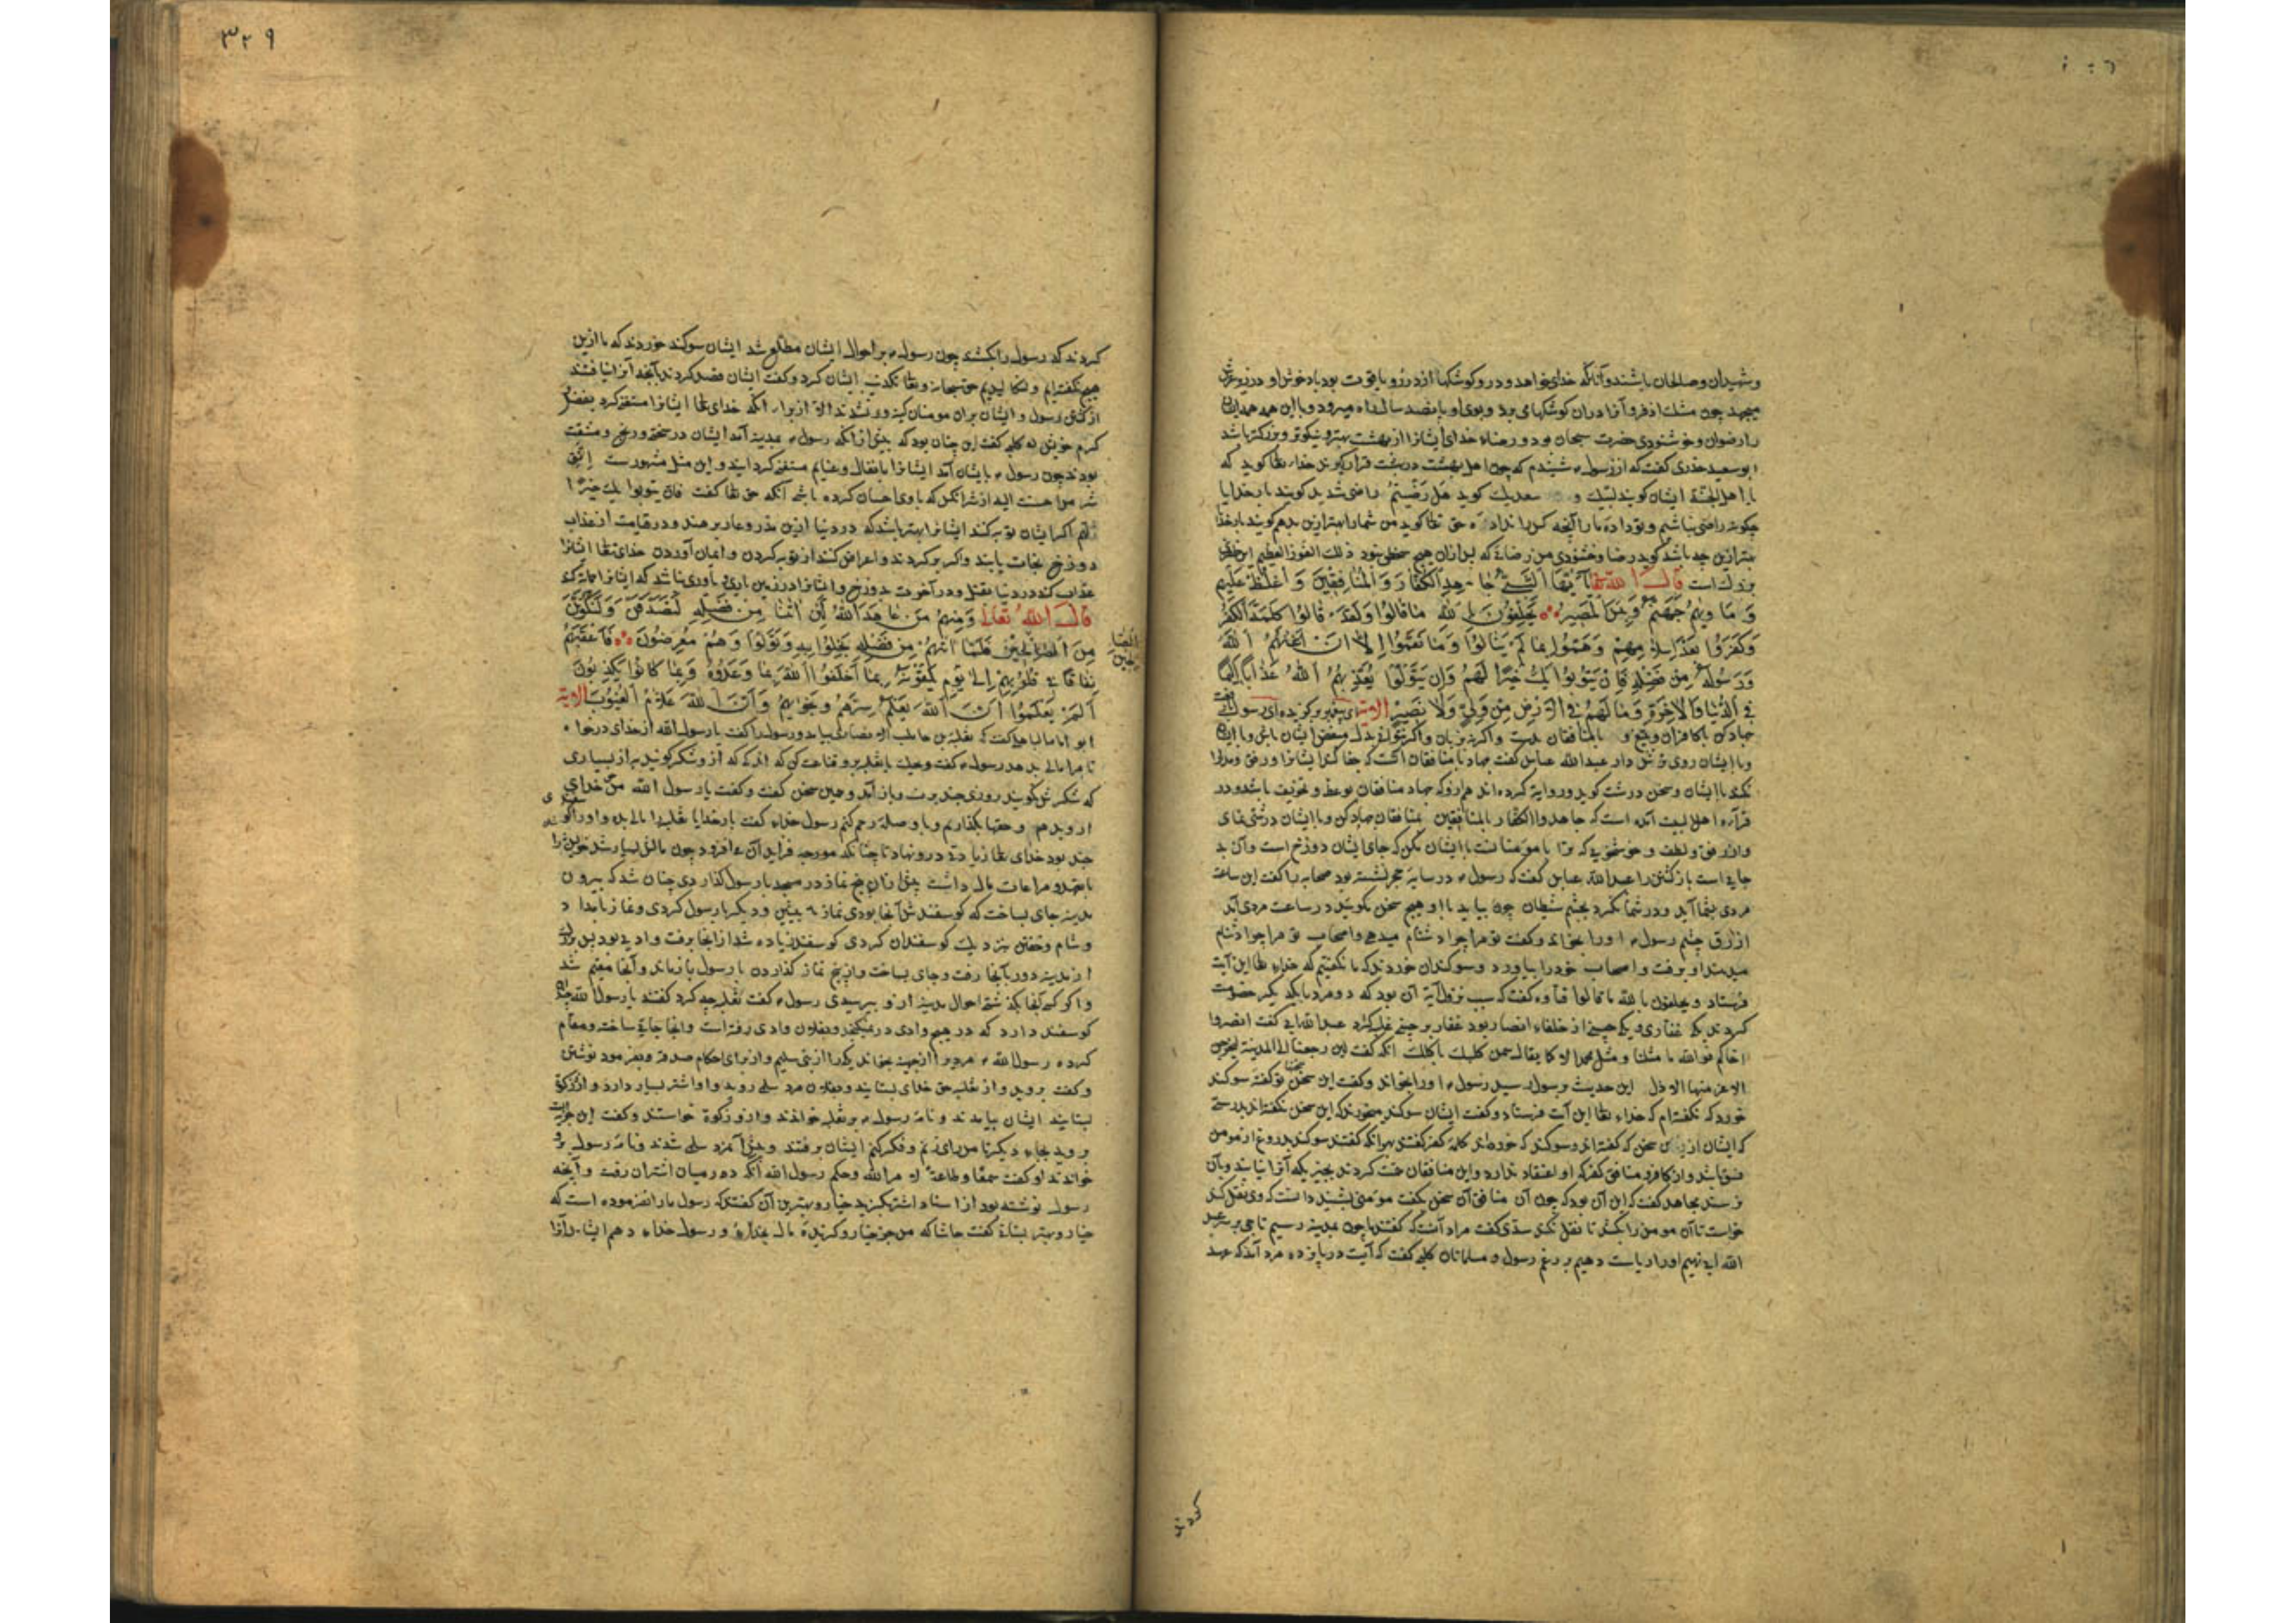 وشهیدان وصالحان باشند وآنانکه خدای خواهد ودر وکوشکها از در ویاقوت بود باد خوش او در زیر عرش
میجهد چون مشک اذفر وآنرا دران کوشکهای برد وبوی او پانصد سال راه میرود وبا این همه
را رضوان وخوشنودی حضرت سبحان بود ورضاء خدای ایشانرا از بهشت بهتر ونیکوتر وبزرکتر باشد
ابو سعید خدری کفت که از رسول شنیدم که چون اهل بهشت در بهشت قرار کیرند خداء تعالی کوید که
یا اهل الجنة ایشان کویند لبیک و سعدیک کوید هل رضیتم راضی شدید کویند بار خدایا
چکونه راضی نباشیم وتو داده ما را آنچه کس را نداده حق تعالی کوید من شما را بهتر ازین بدهم کویند بار خدایا
بهتر ازین چه باشد کوید رضا وخشنودی من رضائی که پس ازان هیچ سخطی نبود ذلک الفوز العظیم این ظفر
بزرک است قال الله تعالی یَا اَیُّهَا النَّبِیُّ جَاهِدِ الْکُفَّارَ وَالْمُنَافِقِینَ وَاغْلُظْ عَلَیْهِمْ
وَمَاوٰیهُمْ جَهَنَّمُ وَبِئْسَ الْمَصِیرُ یَحْلِفُونَ بِاللهِ مَا قَالُوا وَلَقَدْ قَالُوا کَلِمَةَ الْکُفْرِ
وَکَفَرُوا بَعْدَ اِسْلَامِهِمْ وَهَمُّوا بِمَا لَمْ یَنَالُوا وَمَا نَقَمُوا اِلَّا اَنْ اَغْنٰیهُمُ اللهُ
وَرَسُولُهُ مِنْ فَضْلِهِ فَاِنْ یَتُوبُوا یَکُ خَیْرًا لَهُمْ وَاِنْ یَتَوَلَّوْا یُعَذِّبْهُمُ اللهُ عَذَابًا اَلِیمًا
فِی الدُّنْیَا وَالْاٰخِرَةِ وَمَا لَهُمْ فِی الْاَرْضِ مِنْ وَلِیٍّ وَلَا نَصِیرٍ الایة ای پیغمبر برکزیده ای رسول
جهاد کن با کافران وبتیغ و با منافقان بدست واکر نه بزبان واکر نتوانی بدل وبغض ایشان باش وبا ایشان
وبا ایشان روی ترش دار عبدالله عباس کفت جهاد با منافقان آنست که جفا کند ایشانرا ورفق ومدارا
نکند با ایشان وسخن درشت کوید وروایة کرده اند هم ازو که جهاد منافقان بوعظ وتخویف باشد ودر
قرآءة اهل بیت آمده است که جاهدوا الکفار بالمنافقین بمنافقان جهاد کن وبا ایشان درشتی نمای
وان رفق ولطف وخوشخویی که ترا با مؤمنانست با ایشان مکن که جای ایشان دوزخ است وآن بد
جایی است بازکشتن را عبدالله عباس کفت که رسول در سایه حجر نشسته بود صحابه را کفت این ساعت
مردی بشما آید ودر شما نکرد بچشم شیطان چون بیاید با او هیچ سخن مکویید در ساعت مردی آمد
ازرق چشم رسول اورا بخواند وکفت تو مرا چرا دشنام میدهی واصحاب تو مرا چرا دشنام
میدهند او برفت واصحاب خود را بیاورد وسوکندان خوردند که ما نکفتیم که خداء تعالی این آیت
فرستاد ویحلفون بالله ما قالوا قتاده کفت که سبب نزول آیة آن بود که دو مرد با یکدیکر خصومت
کردند یکی غفاری ویکی جهینی از حلفاء انصار بود غفاری بر جهنی غلبه کرد عبدالله ابی کفت انصروا
اخاکم فوالله ما مثلنا ومثل محمد الا کما یقال سمن کلبک یاکلک آنکه کفت لئن رجعنا الی المدینة لیخرجن
الاعز منها الاذل این حدیث برسول رسید رسول اورا بخواند وکفت این سخن تو کفتهٔ سوکند
خورد که نکفته ام که خداء تعالی این آیت فرستاد وکفت ایشان سوکند میخورند که این سخن نکفته اند بدرستی
که ایشان ازین سخن که کفته اند وسوکند که خورده اند کلمة کفر کفتند بهر آنکه کفتند سوکند بدروغ از مومن
فسق باشد واز کافر ومنافق کفر که او اعتقاد ندارد واین منافقان همت کردند بچیزیکه آنرا نیابند وبآن
نرسند مجاهد کفت که این آن بود که چون آن منافق آن سخن بکفت مؤمنی بشنید دانست که وی نقل کند
خواست تا آن مومن را بکشد تا نقل نکند سدی کفت مراد آنست که کفتند ما چون بمدینه رسیم تاجی بر سر عبد
الله ابی نهیم واورا ریاست دهیم بر رغم رسول ومسلمانان کلبی کفت که آیت در پانزده مرد آمد که عهد
کردند
۳۲۹
کردند که رسول را بکشند چون رسول بر احوال ایشان مطلع شد ایشان سوکند خوردند که ما ازین
هیچ نکفته ایم حق سبحانه وتعالی تکذیب ایشان کرد وکفت ایشان قصد کردند بآنچه آنرا نیافتند
از کشتن رسول وایشان بران مومنان کینه ور نشدند الا از برای آنکه خدای تعالی ایشانرا مستغنی کرد بفضل
کرم خویش کلبی کفت این چنان بود که پیش از آنکه رسول بمدینه آمد ایشان در سختی ورنج ومشقت
بودند چون رسول بایشان آمد ایشانرا بانفال وغنایم مستغنی کردانید واین مثل مشهورست اتق
شر من احسنت الیه از شر آنکس که با وی احسان کرده باشی آنکه حق تعالی کفت فان یتوبوا یک خیرا
لهم اکر ایشان توبه کنند ایشانرا بهتر باشد که در دنیا ازین عذر وعار برهند ودر قیامت از عذاب
دوزخ نجات یابند واکر برکردند واعراض کنند از توبه کردن وایمان آوردن خدای تعالی ایشانرا
عذاب کند در دنیا بقتل ودر آخرت بدوزخ وایشانرا در زمین یاری ویاوری نباشد که ایشانرا حمایت کند
قال الله تعالی وَمِنْهُمْ مَنْ عَاهَدَ اللهَ لَئِنْ اٰتٰینَا مِنْ فَضْلِهِ لَنَصَّدَّقَنَّ وَلَنَکُونَنَّ
مِنَ الصَّالِحِینَ فَلَمَّا اٰتٰیهُمْ مِنْ فَضْلِهِ بَخِلُوا بِهِ وَتَوَلَّوْا وَهُمْ مُعْرِضُونَ فَاَعْقَبَهُمْ
الصالحین
نِفَاقًا فِی قُلُوبِهِمْ اِلٰی یَوْمِ یَلْقَوْنَهُ بِمَا اَخْلَفُوا اللهَ مَا وَعَدُوهُ وَبِمَا کَانُوا یَکْذِبُونَ
اَلَمْ یَعْلَمُوا اَنَّ اللهَ یَعْلَمُ سِرَّهُمْ وَنَجْوٰیهُمْ وَاَنَّ اللهَ عَلَّامُ الْغُیُوبِ الایة
ابو امامه الباهلی کفت که ثعلبة بن حاطب الانصاری بیامد ورسول را کفت یا رسول الله از خدای درخواه
تا مرا مالی بدهد رسول کفت ویحک یا ثعلبه برو قناعت کن که اندکی که ازو شکر کویند به از بسیاری
که شکرش نکویند روزی چند برفت وباز آمد وهمین سخن کفت وکفت یا رسول الله من خدای
ازو بدهم وحقها بکذارم وبا وصلهٔ رحم کنم رسول خداء کفت بار خدایا ثعلبه را مالی بده واورا کوسفندی
چند بود خدای تعالی زیادتی درو نهاد تا چنانکه مورچه فزاید آن می افزود چون مالش بسیار شد خویش را
بتعهد ومراعات مال داشت پیش ازان پنج نماز در مسجد با رسول کذاردی چنان شد که بیرون
مدینه جای بساخت که کوسفندش آنجا بودی نماز پیشین ودیکر با رسول کردی ونماز بامداد
وشام وخفتن بنزدیک کوسفندان کردی کوسفند زیاده شد از آنجا برفت وادیی بود بس بزرک
از مدینه دور بآنجا رفت وجای بساخت واز پنج نماز کذاردن با رسول باز ماند وآنجا مقیم شد
واکر کسی بآنجا بکذشتی احوال مدینه ازو بپرسیدی رسول کفت ثعلبه چه کرد کفتند یا رسول الله چندان
کوسفند دارد که در هیچ وادی در نمیکنجد وبفلان وادی رفته است وآنجا جایی ساخته ومقام
کرده رسول الله مردی را از جهینه بخواند ویکی را از بنی سلیم واز برای احکام صدقه وبفرمود نوشتن
وکفت بروید واز ثعلبه حق خدای بستانید وبفلان مرد سلمی روید واو اشتر بسیار دارد وازو زکوة
بستانید ایشان بیامدند ونامهٔ رسول بر ثعلبه خواندند وازو زکوة خواستند وکفت این جزیت
بروید بجاء دیکر تا من رای زنم وفکر کنم ایشان برفتند وپیش آنمرد سلمی شدند ونامهٔ رسول برو
خواندند او کفت سمعا وطاعة لامر الله وحکم رسول الله آنکه در میان اشتران رفت وآنچه
رسول نوشته بود از اسنان اشتر بکزید خیار وبهترین آن کفتند که رسول ما را نفرموده است که
خیار وبهتر بستانیم کفت حاشا که من جز خیار وکزیدهٔ مال بخداء ورسول خداء دهم ایشان آنرا